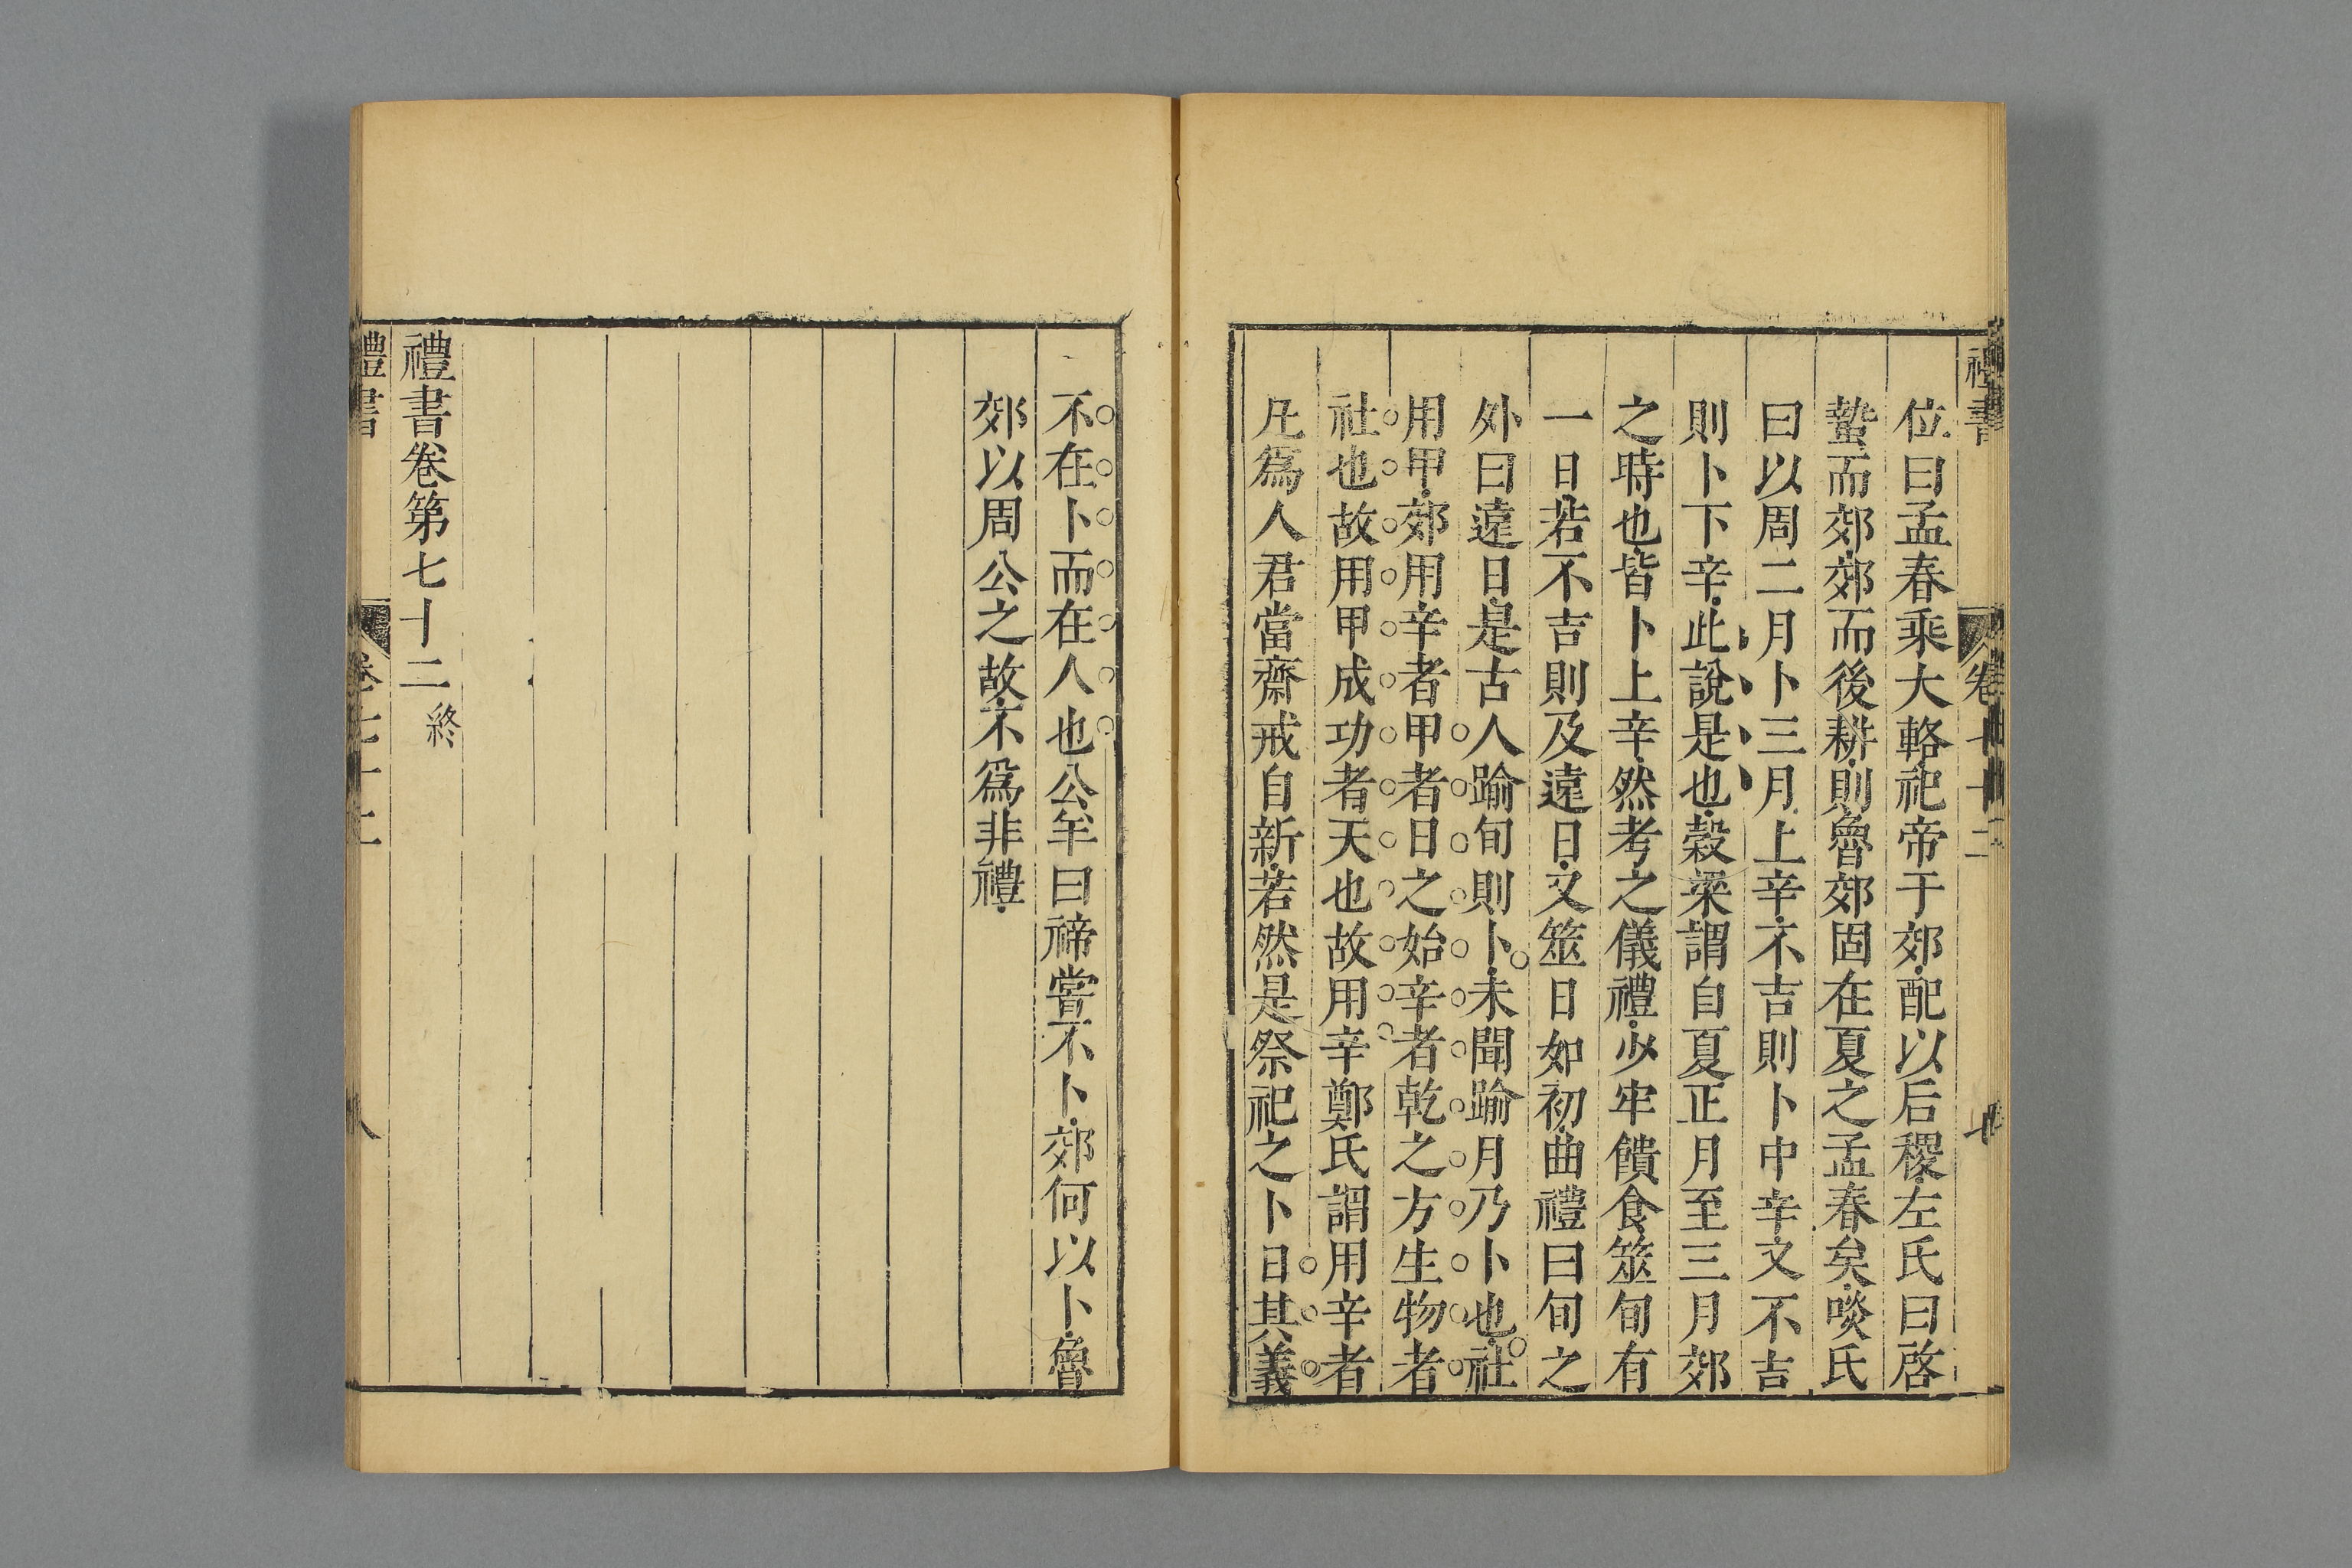 位曰孟春乘大輅祀帝于郊配以后稷左氏曰啓
蟄而郊郊而後耕則魯郊固在夏之孟春矣啖氏
曰以周二月卜三月上辛不吉則卜中辛又不吉
則卜下辛此說是也穀梁謂自夏正月至三月郊
之時也皆卜上辛然考之儀禮少牢饋食筮旬有
一日若不吉則及遠日又筮日如初曲禮曰旬之
外曰遠日是古人踰旬則卜未聞踰月乃卜也社
用甲郊用辛者甲者日之始辛者乾之方生物者
社也故用甲成功者天也故用辛鄭氏謂用辛者
凡爲人君當齋戒自新若然是祭祀之卜日其義
不在卜而在人也公羊曰禘嘗不卜郊何以卜魯
郊以周公之故不爲非禮
禮書卷第七十二終
禮書
卷七十二
八